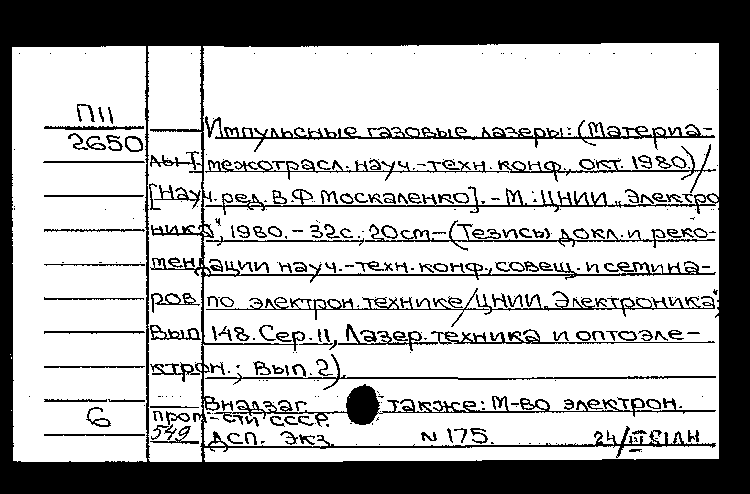 П11
2650
Импульсные газовые лазеры: (Материа-
лы I межотрасл. науч.-техн. конф., окт. 1980) /
[Науч. ред. В.Ф. Москаленко]. - М.: ЦНИИ „Электро
ника", 1980. - 32с.; 20см. - (Тезисы докл. и реко-
мендации науч.-техн. конф., совещ. и семина-
ров по электрон. технике / ЦНИИ „Электроника";
Вып. 148. Сер. 11, Лазер. техника и оптоэле-
ктрон.; Вып. 2).
Внадзаг. также: М-во электрон.
пром-сти СССР.
б
549 ДСП. Экз. N 175. 24/III 81 ЛН